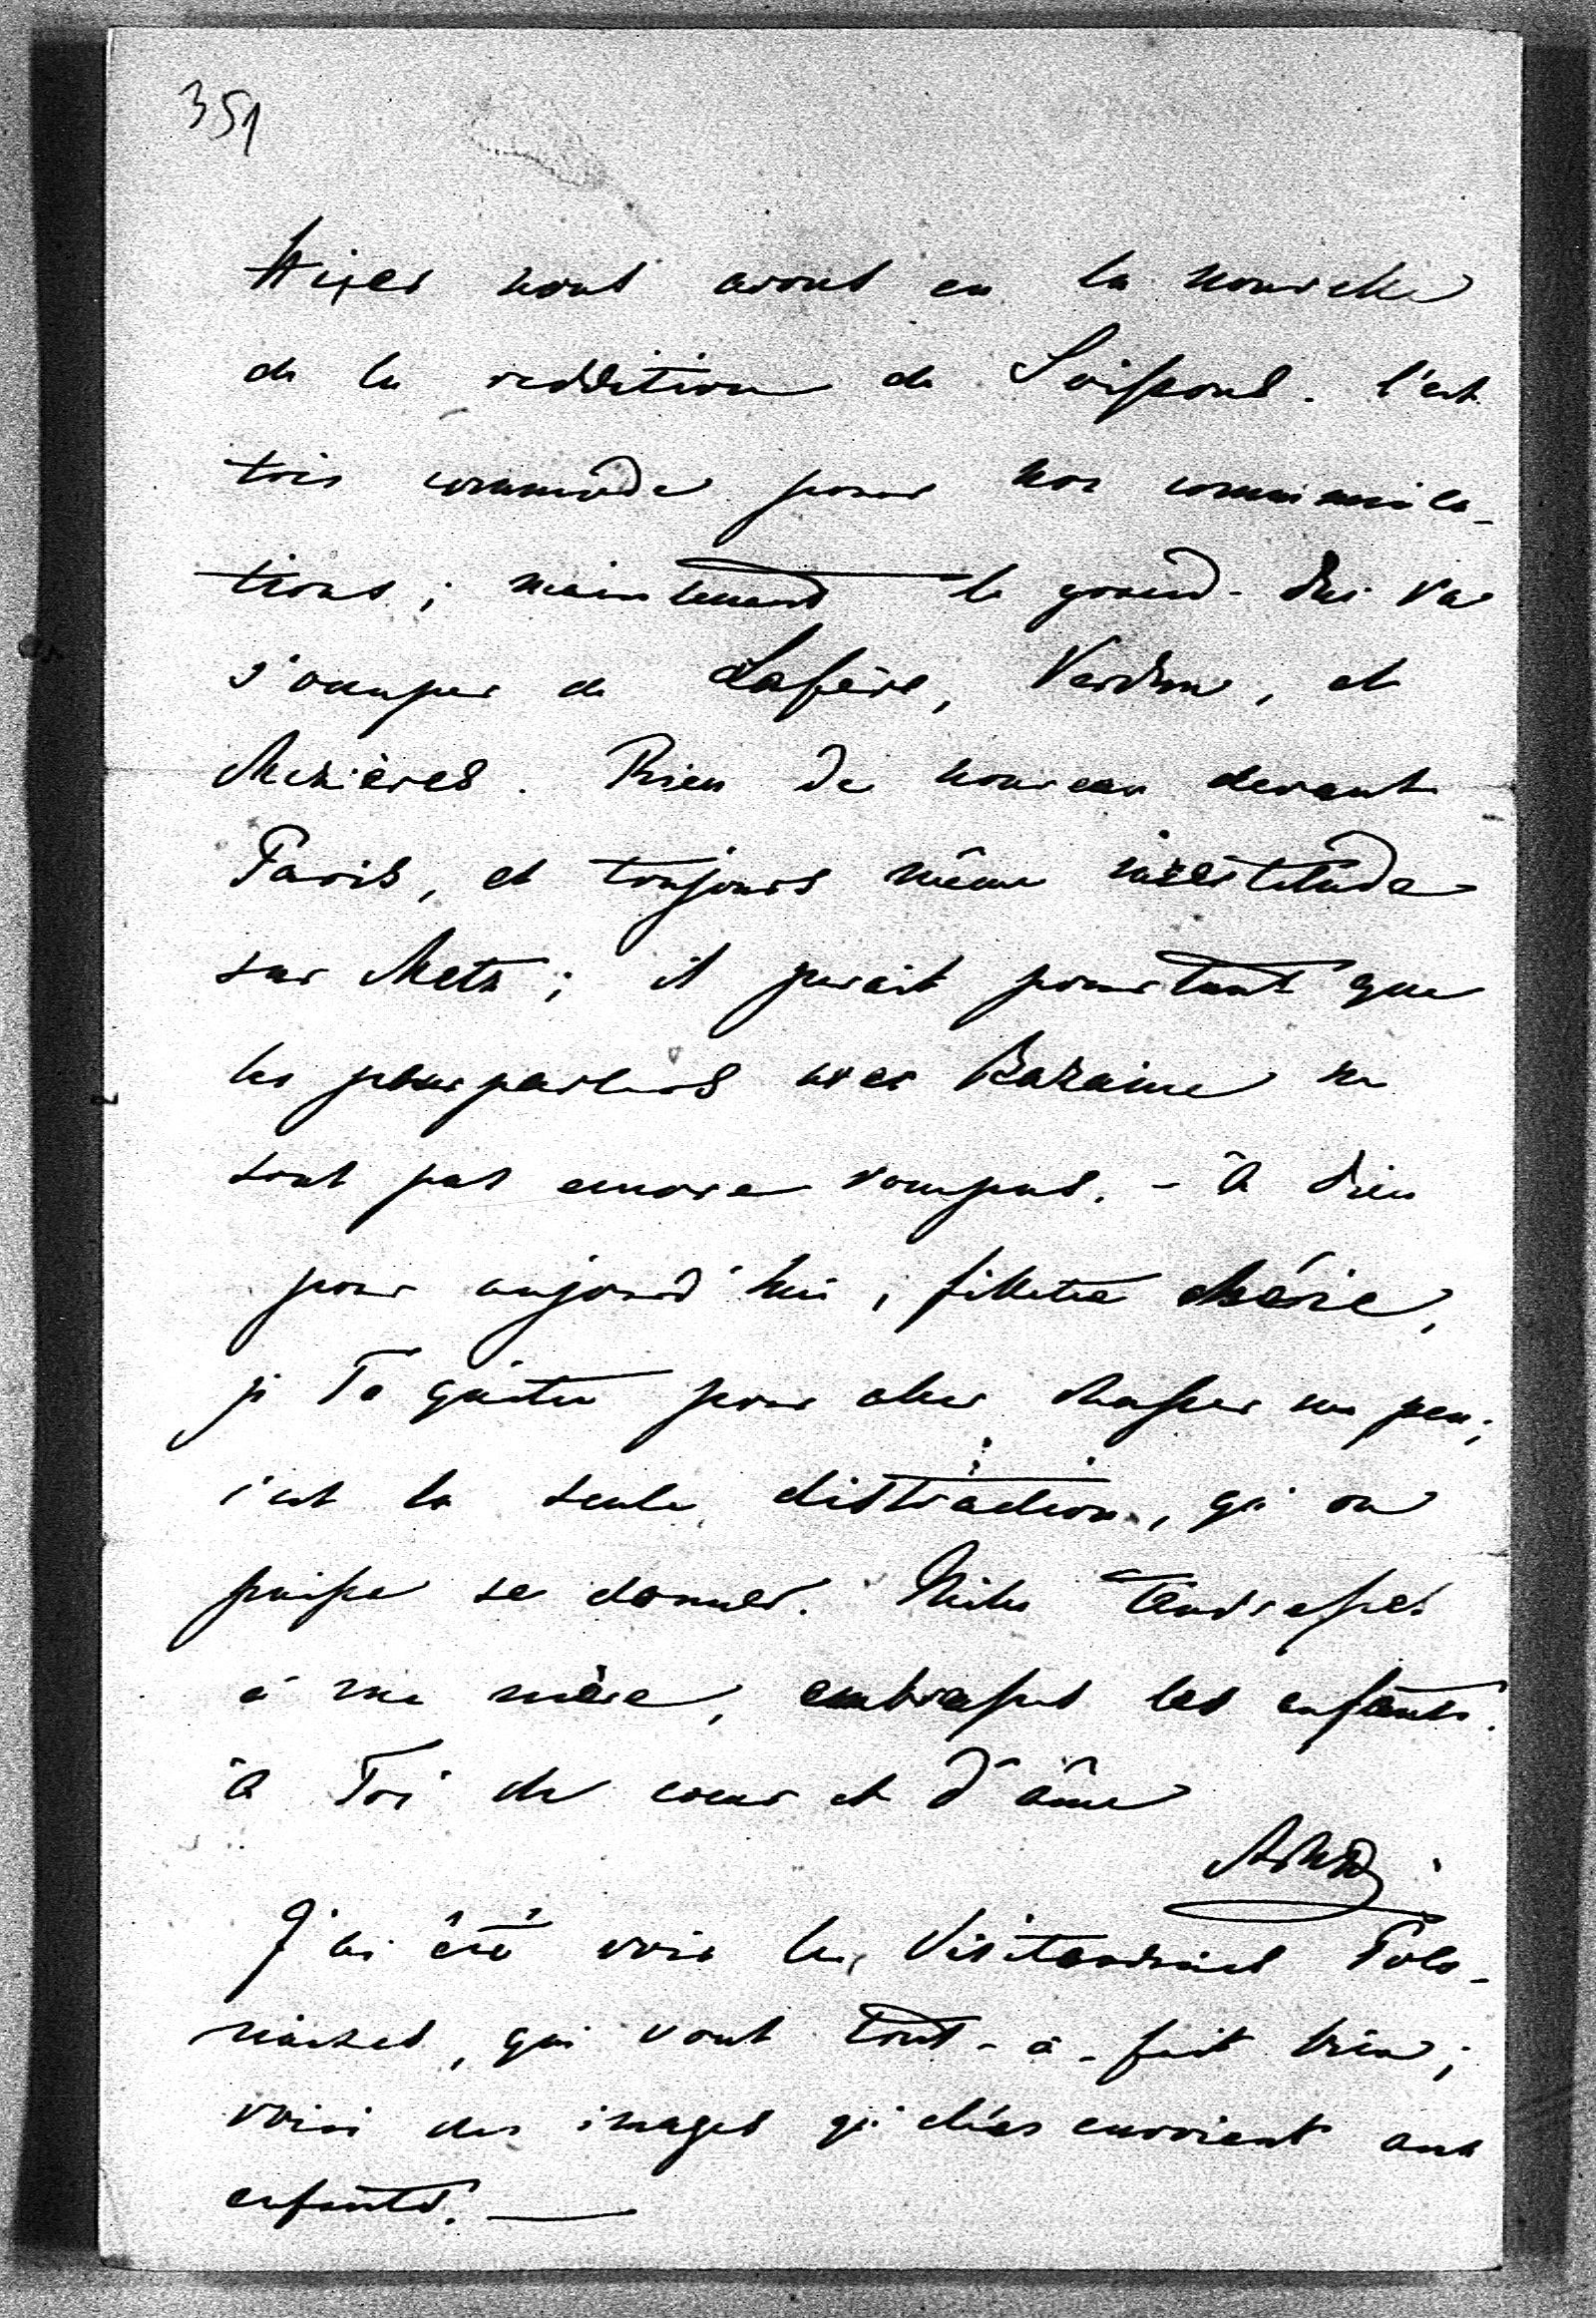 351
Hier nous avons eu la nouvelle
de la reddition de Soissons. C'est
très commode pour nos communica-
tions ; maintenant le grand-duc va
s'occuper de Lafère, Verdun, et
Mezières. Rien de nouveau devant
Paris, et toujours même incertitude
sur Metz ; il parait pourtant que
les pourparlers avec Bazaine ne
sont pas encore rompus. - à Dieu
pour aujourd'hui, fillette chérie,
je Te quitte pour aller chasser un peu ;
c'est la seule distraction, qu'on
puisse se donner. Milles tendresses
à ma mère, embrasses les enfants.
à Toi de coeur et d'âme
J'ai été voir les Visitandines Polo-
naises, qui vont tout-à-fait bien ;
voici des images qu'elles envoient aux
enfants. —